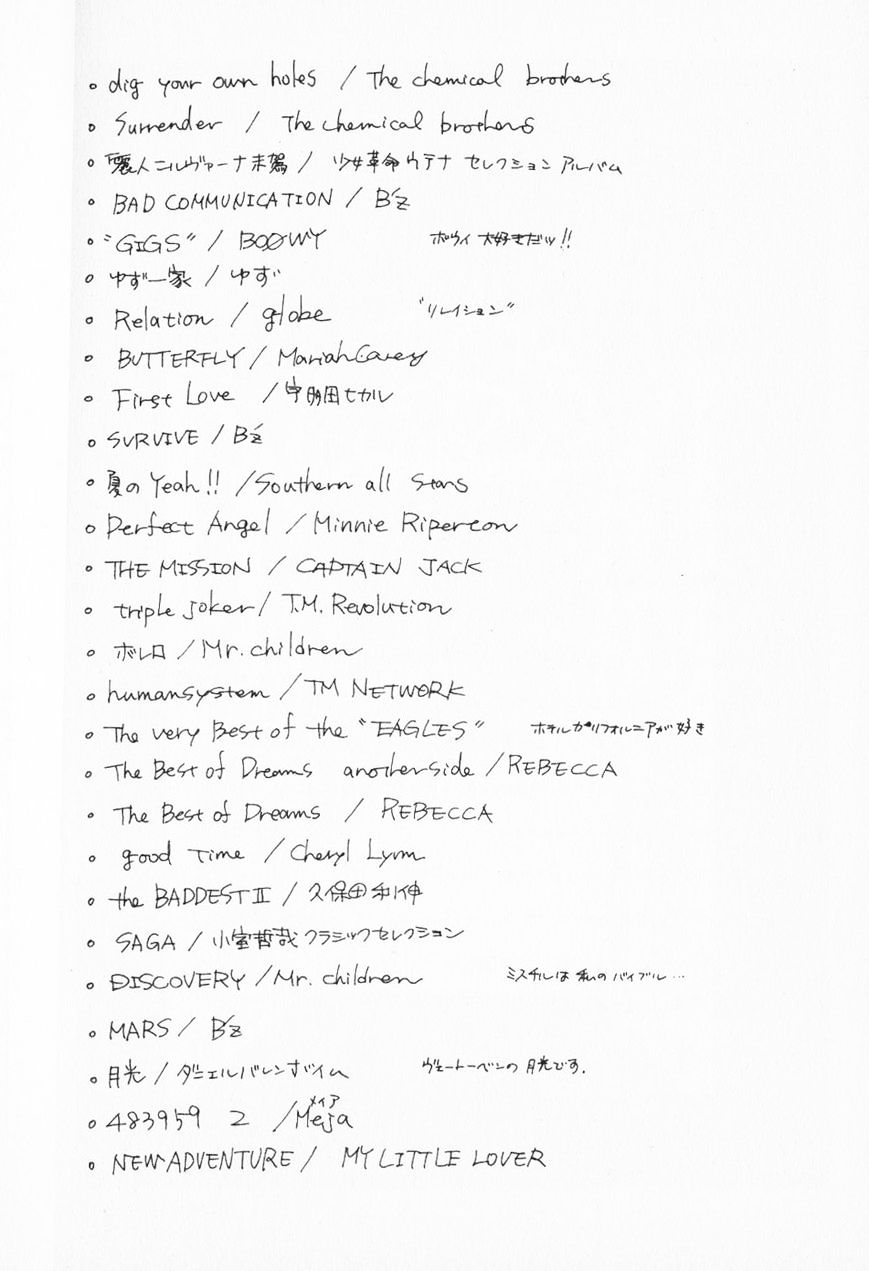 。dig your own holes / The chemical brothers
。Surrender / The chemical brothers
。麗人ニルヴァーナ来駕 / 少女革命ウテナ セレクション アルバム
。BAD COMMUNICATION / B'z
。“GIGS” / BOØWY ボウイ 大好きだッ!!
。ゆず一家 / ゆず
。Relation / globe “リレイション”
。BUTTERFLY / Mariah Carey
。First Love / 宇多田ヒカル
。SURVIVE / B'z
。夏のYeah!! / Southern all stars
。Perfect Angel / Minnie Ripereon
。THE MISSION / CAPTAIN JACK
。triple joker / T.M. Revolution
。ボレロ / Mr. children
。humansystem / TM NETWORK
。The very Best of the “EAGLES” ホテルカリフォルニアが好き
。The Best of Dreams another side / REBECCA
。The Best of Dreams / REBECCA
。good Time / Cheryl Lynn
。the BADDEST II / 久保田利伸
。SAGA / 小室哲哉クラシックセレクション
。DISCOVERY / Mr. children ミスチルは私のバイブル…
。MARS / B'z
。月光 / ダニエルバレンボイム ヴェートーベンの月光です.
。483959 2 / Meja メイア
。NEW ADVENTURE / MY LITTLE LOVER